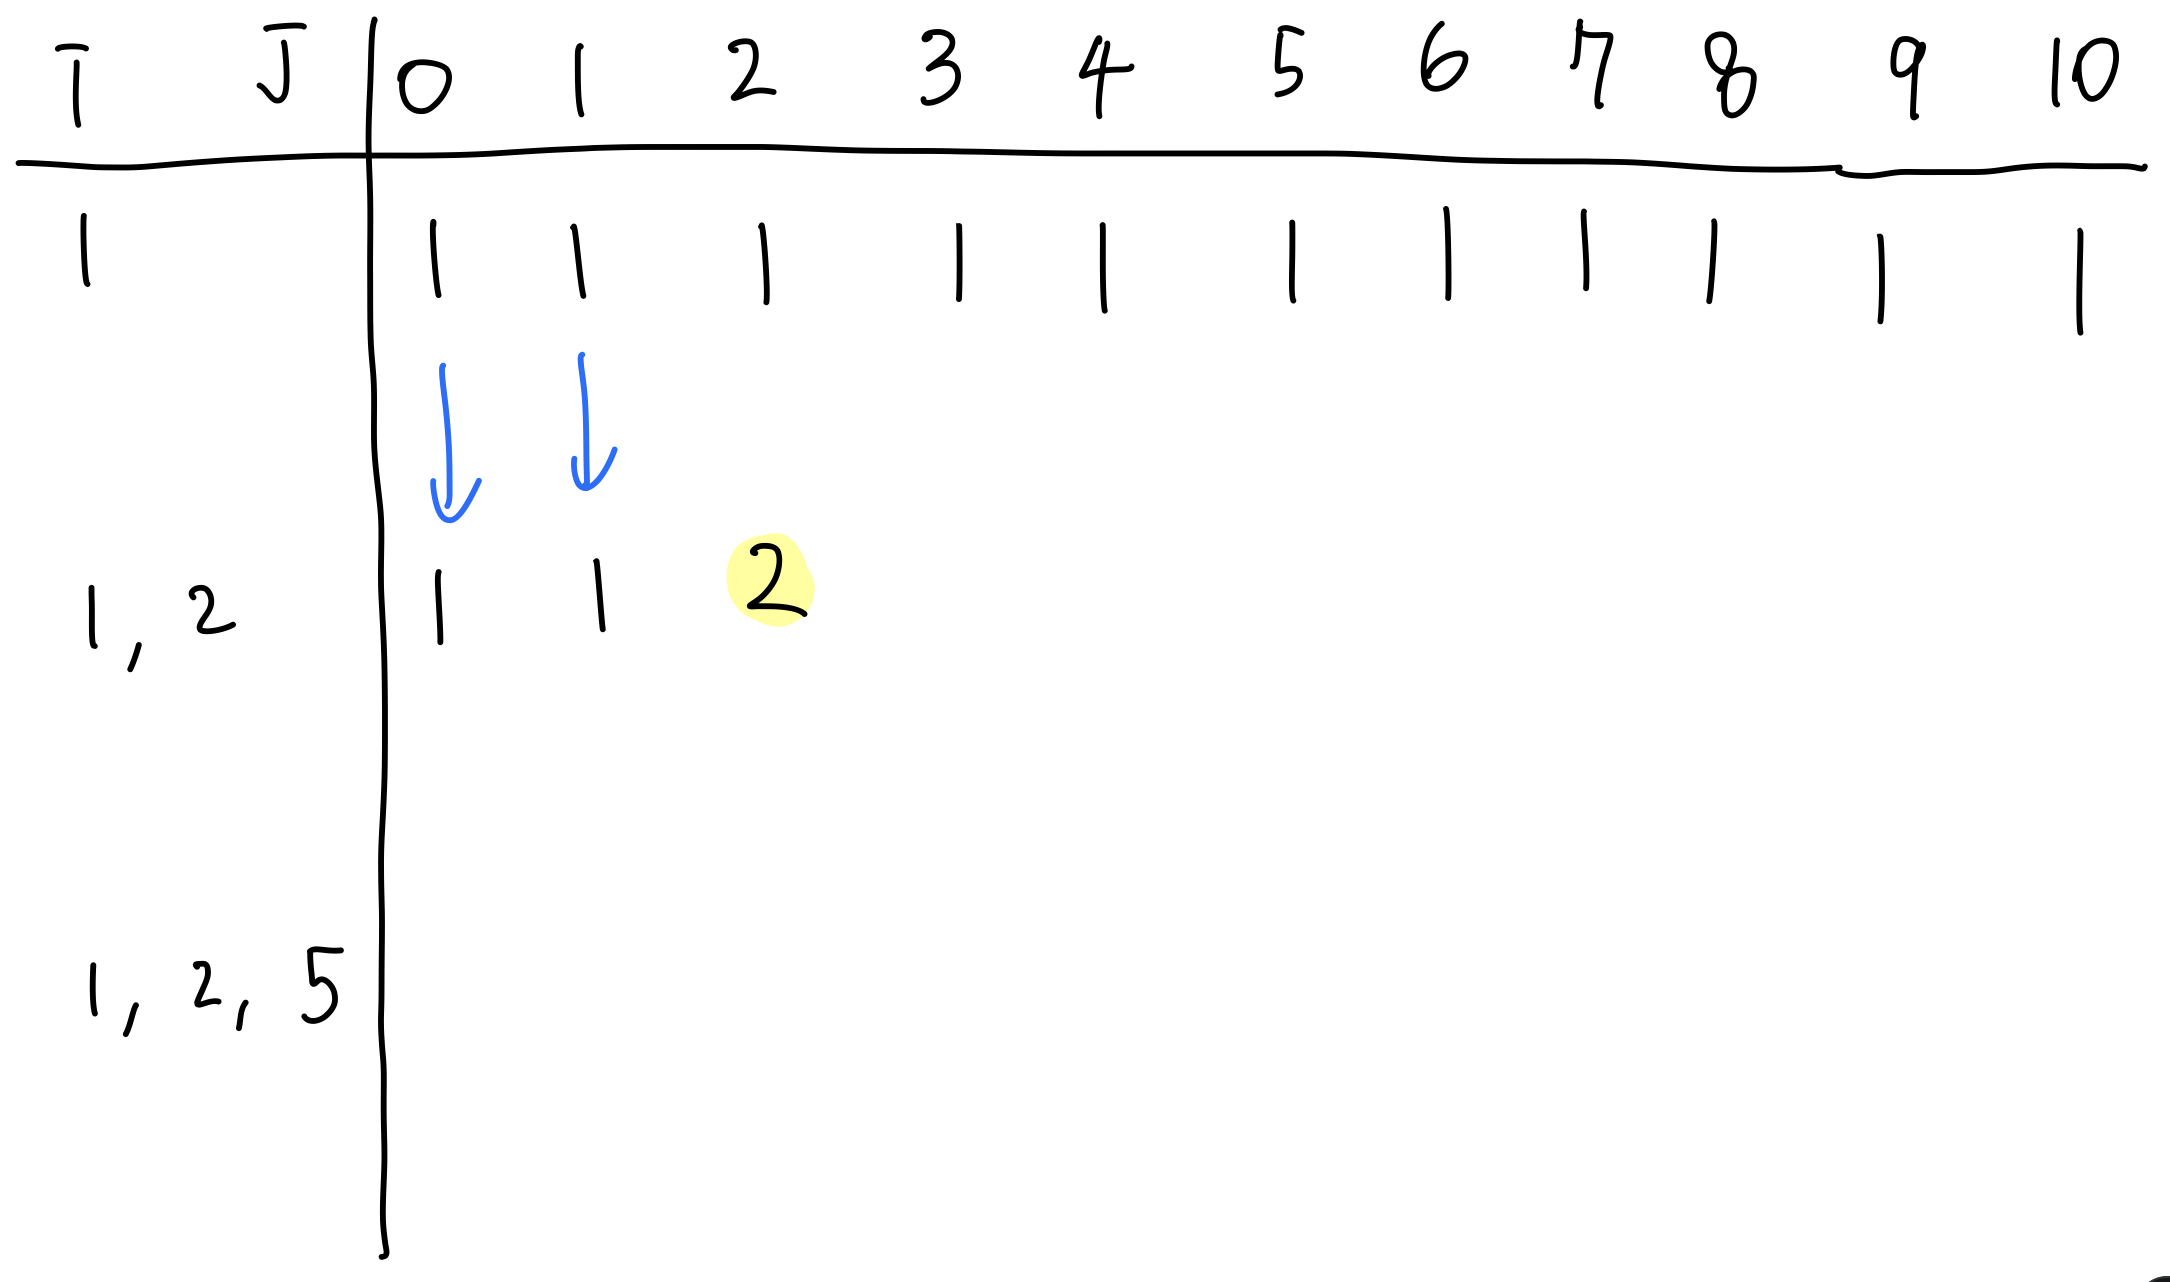 I J 0 1 2 3 4 5 6 7 8 9 10
1 1 1 1 1 1 1 1 1 1 1 1
1, 2 1 1 2
1, 2, 5